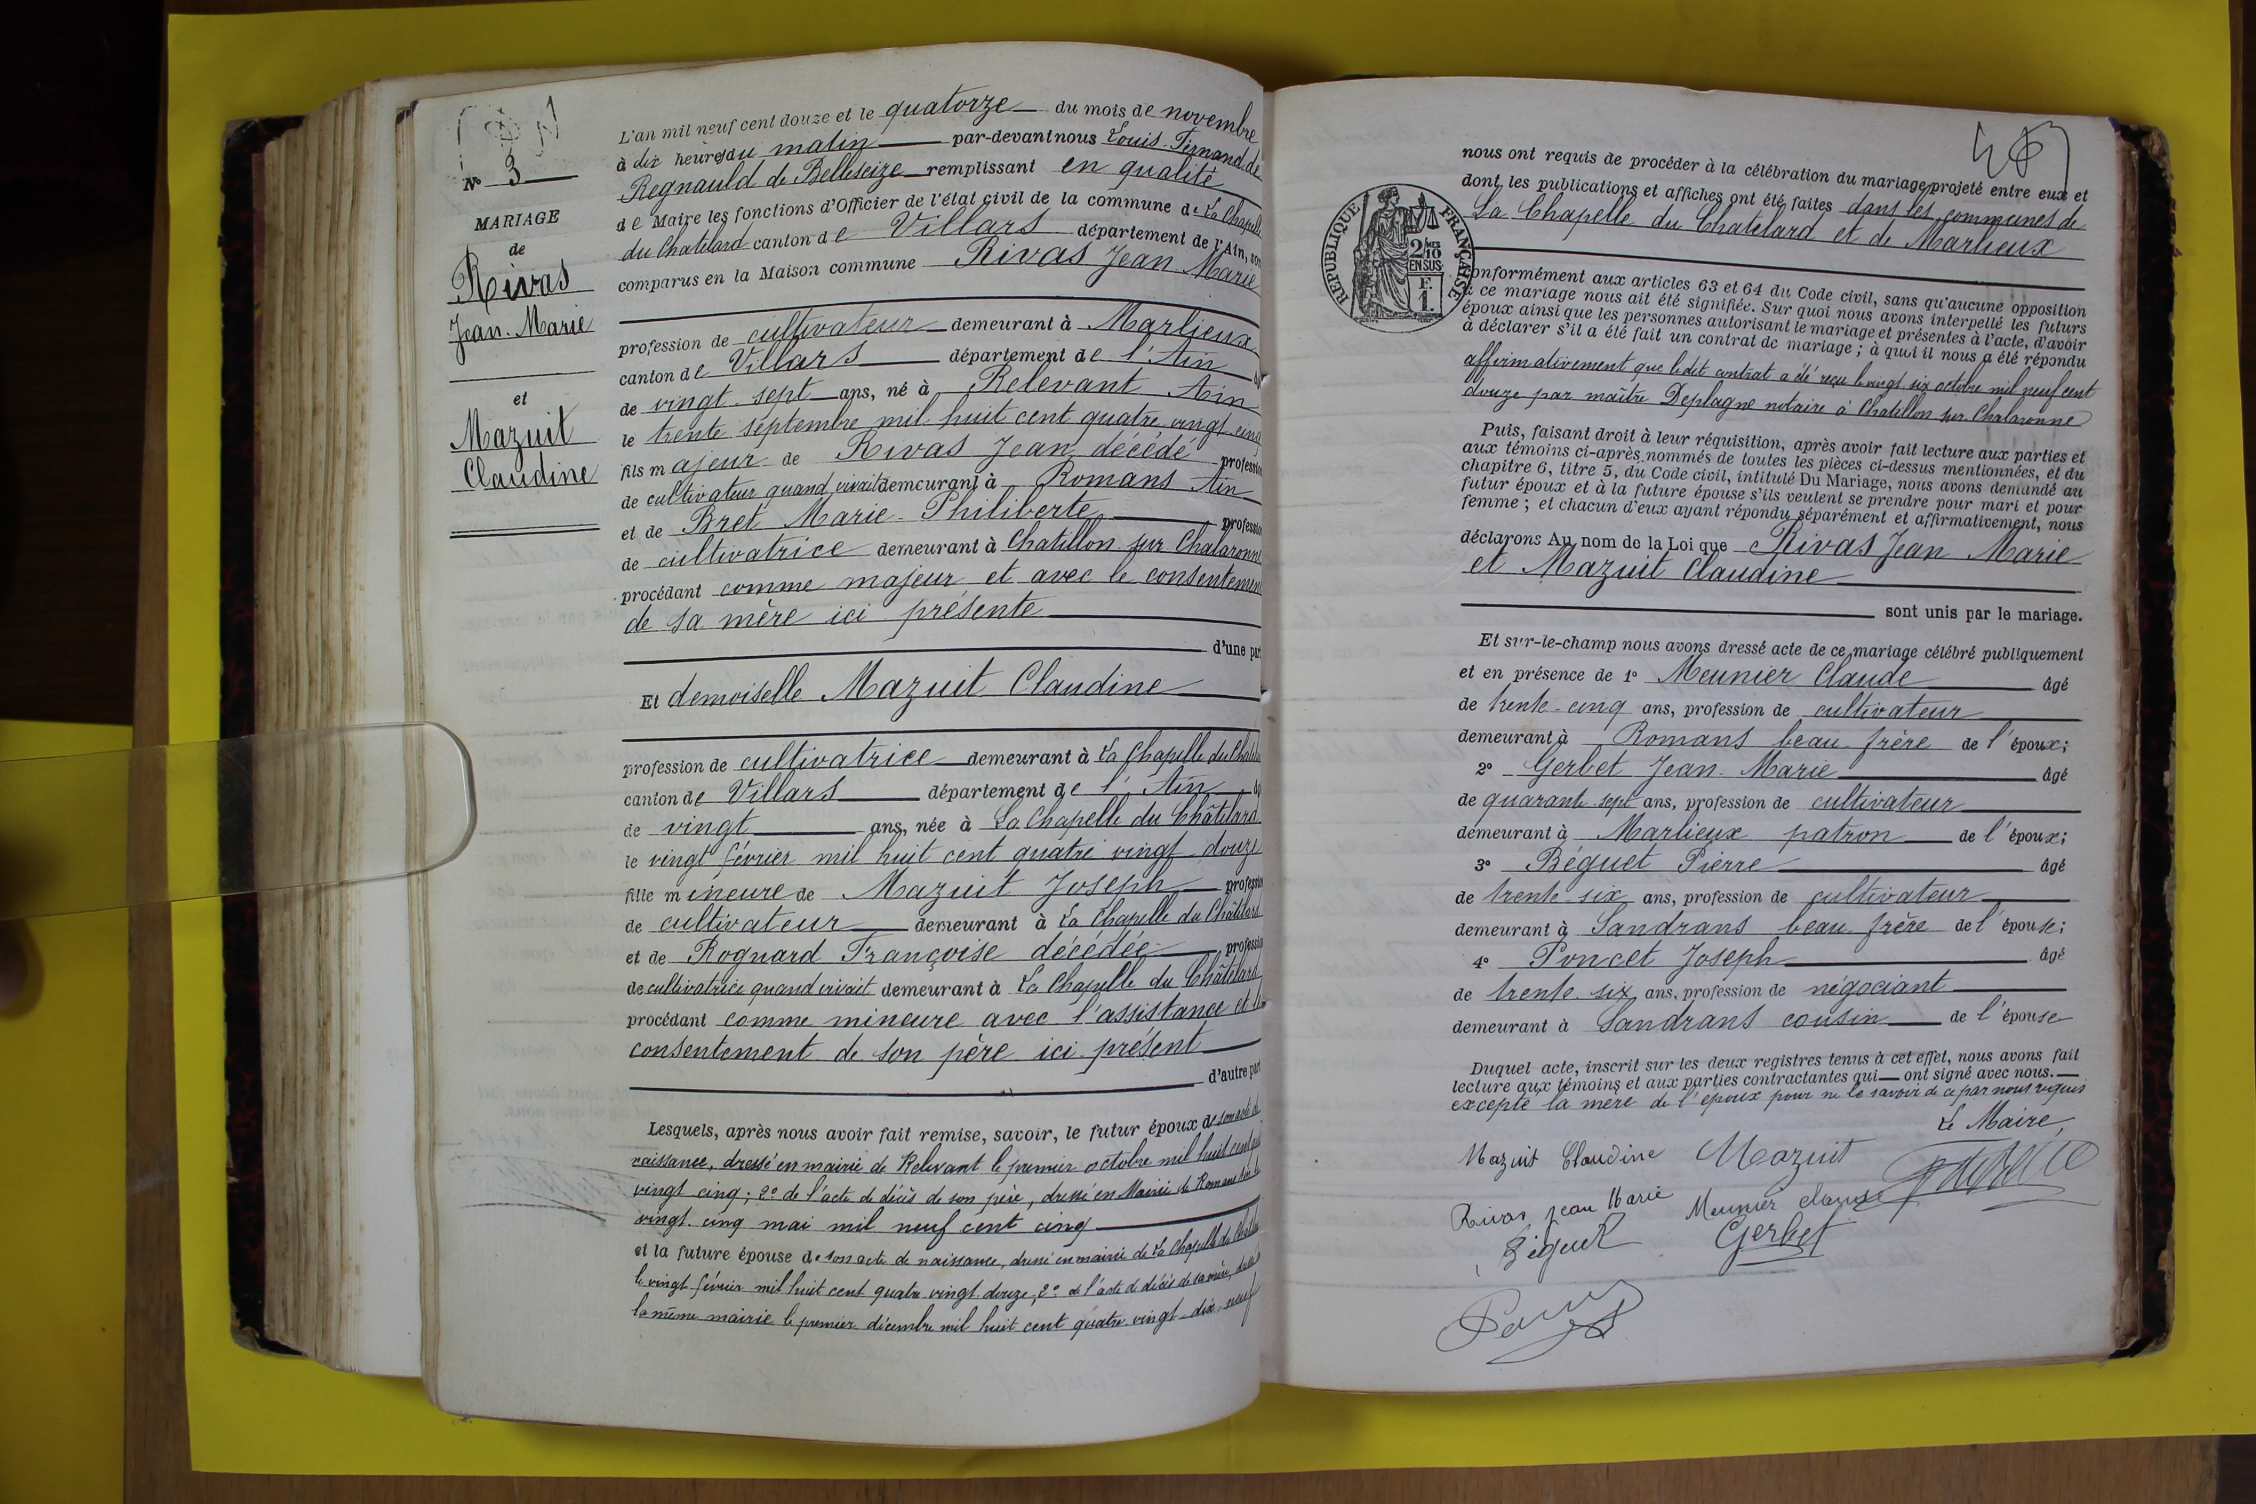 N° 3
MARIAGE
de
Rivas
Jean-Marie
et
Mazuit
Claudine
L'an mil neuf cent douze et le quatorze du mois de novembre
à dix heures du matin par-devant nous Louis-Fernand de
Regnauld de Belleseize remplissant en qualité
de Maire les fonctions d'Officier de l'état civil de la commune de La Chapelle
du Chatelard canton de Villars département de l'Ain, sont
comparus en la Maison commune Rivas Jean Marie
profession de cultivateur demeurant à Marlieux
canton de Villars département de l'Ain
de vingt-sept ans, né à Relevant Ain
le trente septembre mil-huit cent quatre vingt cinq
fils majeur de Rivas Jean décédé profession
de cultivateur quand vivait demeurant à Romans Ain
et de Bret Marie-Philiberte profession
de cultivatrice demeurant à Chatillon sur Chalaronne
procédant comme majeur et avec le consentement
de sa mère ici présente
d'une part
Et demoiselle Mazuit Claudine
profession de cultivatrice demeurant à La Chapelle du Chatelard
canton de Villars département de l'Ain
de vingt ans, née à La Chapelle du Châtelard
le vingt février mil huit cent quatre vingt douze
fille mineure de Mazuit Joseph profession
de cultivateur demeurant à La Chapelle du Châtelard
et de Rognard Françoise décédée profession
de cultivatrice quand vivait demeurant à La Chapelle du Châtelard
procédant comme mineure avec l'assistance et le
consentement de son père ici présent
d'autre part
Lesquels, après nous avoir fait remise, savoir, le futur époux de son acte de
naissance, dressé en mairie de Relevant le premier octobre mil huit cent
vingt cinq; 2° de l'acte de décès de son père, dressé en Mairie de Romans
vingt-cinq mai mil neuf cent cinq
et la future épouse de son acte de naissance, dressé en mairie de La Chapelle du Chatelard
le vingt février mil huit cent quatre-vingt douze, 2° de l'acte de décès de sa mère,
la même mairie le premier décembre mil huit cent quatre-vingt-dix-neuf
nous ont requis de procéder à la célébration du mariage projeté entre eux et
dont les publications et affiches ont été faites dans les communes de
La Chapelle du Chatelard et de Marlieux
REPUBLIQUE FRANÇAISE
2/10
EN SUS
1 F.
conformément aux articles 63 et 64 du Code civil, sans qu'aucune opposition
à ce mariage nous ait été signifiée. Sur quoi nous avons interpellé les futurs
époux ainsi que les personnes autorisant le mariage et présentes à l'acte, d'avoir
à déclarer s'il a été fait un contrat de mariage; à quoi il nous a été répondu
affirmativement que ledit contrat a été reçu le vingt six octobre mil neuf cent
douze par maître Deplagne notaire à Chatillon sur Chalaronne
Puis, faisant droit à leur réquisition, après avoir fait lecture aux parties et
aux témoins ci-après nommés de toutes les pièces ci-dessus mentionnées, et du
chapitre 6, titre 5, du Code civil, intitulé Du Mariage, nous avons demandé au
futur époux et à la future épouse s'ils veulent se prendre pour mari et pour
femme; et chacun d'eux ayant répondu séparément et affirmativement, nous
déclarons Au nom de la Loi que Rivas Jean Marie
et Mazuit Claudine
sont unis par le mariage.
Et sur-le-champ nous avons dressé acte de ce mariage célébré publiquement
et en présence de 1° Meunier Claude âgé
de trente-cinq ans, profession de cultivateur
demeurant à Romans beau-frère de l'époux;
2° Gerbet Jean-Marie âgé
de quarante-sept ans, profession de cultivateur
demeurant à Marlieux patron de l'époux;
3° Béguet Pierre âgé
de trente-six ans, profession de cultivateur
demeurant à Sandrans beau-frère de l'épouse;
4° Poncet Joseph âgé
de trente-six ans, profession de négociant
demeurant à Sandrans cousin de l'épouse
Duquel acte, inscrit sur les deux registres tenus à cet effet, nous avons fait
lecture aux témoins et aux parties contractantes qui ont signé avec nous.
excepté la mère de l'époux pour ne le savoir de ce par nous requis
Le Maire,
Mazuit Claudine Mazuit
Rivas Jean Marie Meunier claude
Béguet Gerbet